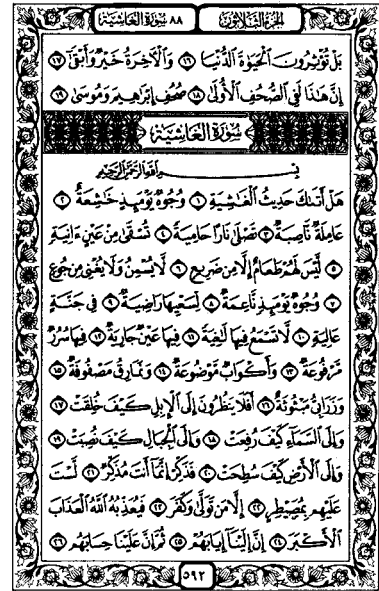 الجزء الثلاثون ٨٨ سورة الغاشية
بَلْ تُؤْثِرُونَ الْحَيَوٰةَ الدُّنْيَا ۝١٦ وَالْأَخِرَةُ خَيْرٌ وَأَبْقَىٰ ۝١٧
إِنَّ هَٰذَا لَفِي الصُّحُفِ الْأُولَىٰ ۝١٨ صُحُفِ إِبْرَاهِيمَ وَمُوسَىٰ ۝١٩
سُورَةُ الْغَاشِيَةِ
بِسْمِ اللَّهِ الرَّحْمَٰنِ الرَّحِيمِ
هَلْ أَتَىٰكَ حَدِيثُ الْغَٰشِيَةِ ۝١ وُجُوهٌ يَوْمَئِذٍ خَٰشِعَةٌ ۝٢
عَامِلَةٌ نَّاصِبَةٌ ۝٣ تَصْلَىٰ نَارًا حَامِيَةً ۝٤ تُسْقَىٰ مِنْ عَيْنٍ ءَانِيَةٍ
۝٥ لَّيْسَ لَهُمْ طَعَامٌ إِلَّا مِن ضَرِيعٍ ۝٦ لَّا يُسْمِنُ وَلَا يُغْنِي مِن جُوعٍ
۝٧ وُجُوهٌ يَوْمَئِذٍ نَّاعِمَةٌ ۝٨ لِّسَعْيِهَا رَاضِيَةٌ ۝٩ فِي جَنَّةٍ
عَالِيَةٍ ۝١٠ لَّا تَسْمَعُ فِيهَا لَٰغِيَةً ۝١١ فِيهَا عَيْنٌ جَارِيَةٌ ۝١٢ فِيهَا سُرُرٌ
مَّرْفُوعَةٌ ۝١٣ وَأَكْوَابٌ مَّوْضُوعَةٌ ۝١٤ وَنَمَارِقُ مَصْفُوفَةٌ ۝١٥
وَزَرَابِيُّ مَبْثُوثَةٌ ۝١٦ أَفَلَا يَنظُرُونَ إِلَى الْإِبِلِ كَيْفَ خُلِقَتْ ۝١٧
وَإِلَى السَّمَاءِ كَيْفَ رُفِعَتْ ۝١٨ وَإِلَى الْجِبَالِ كَيْفَ نُصِبَتْ ۝١٩
وَإِلَى الْأَرْضِ كَيْفَ سُطِحَتْ ۝٢٠ فَذَكِّرْ إِنَّمَا أَنتَ مُذَكِّرٌ ۝٢١ لَّسْتَ
عَلَيْهِم بِمُصَيْطِرٍ ۝٢٢ إِلَّا مَن تَوَلَّىٰ وَكَفَرَ ۝٢٣ فَيُعَذِّبُهُ اللَّهُ الْعَذَابَ
الْأَكْبَرَ ۝٢٤ إِنَّ إِلَيْنَا إِيَابَهُمْ ۝٢٥ ثُمَّ إِنَّ عَلَيْنَا حِسَابَهُم ۝٢٦
٥٩٢